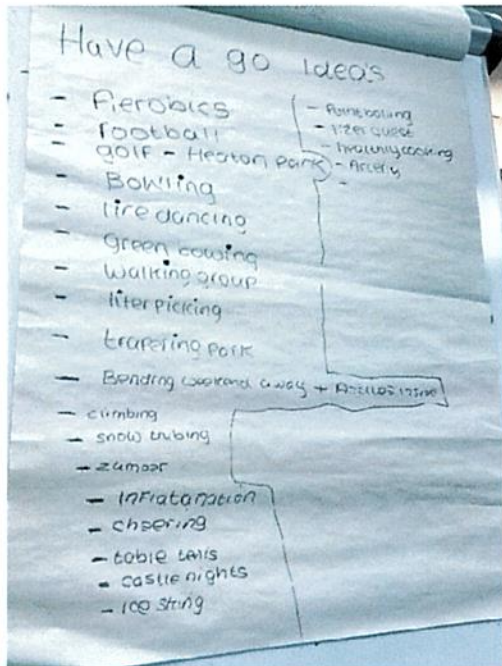 Have a go ideas
- Aerobics
- football
- golf - Heaton Park
- Bowling
- line dancing
- green bowling
- walking group
- liter picking
- trapering park
- Bonding weekend away +
- climbing
- snow tubing
- zumbar
- Inflatanation
- cheering
- table tenis
- castle nights
- ice sking
- Paintboling
- lazer quest
- healthly cooking
- Arcery
-